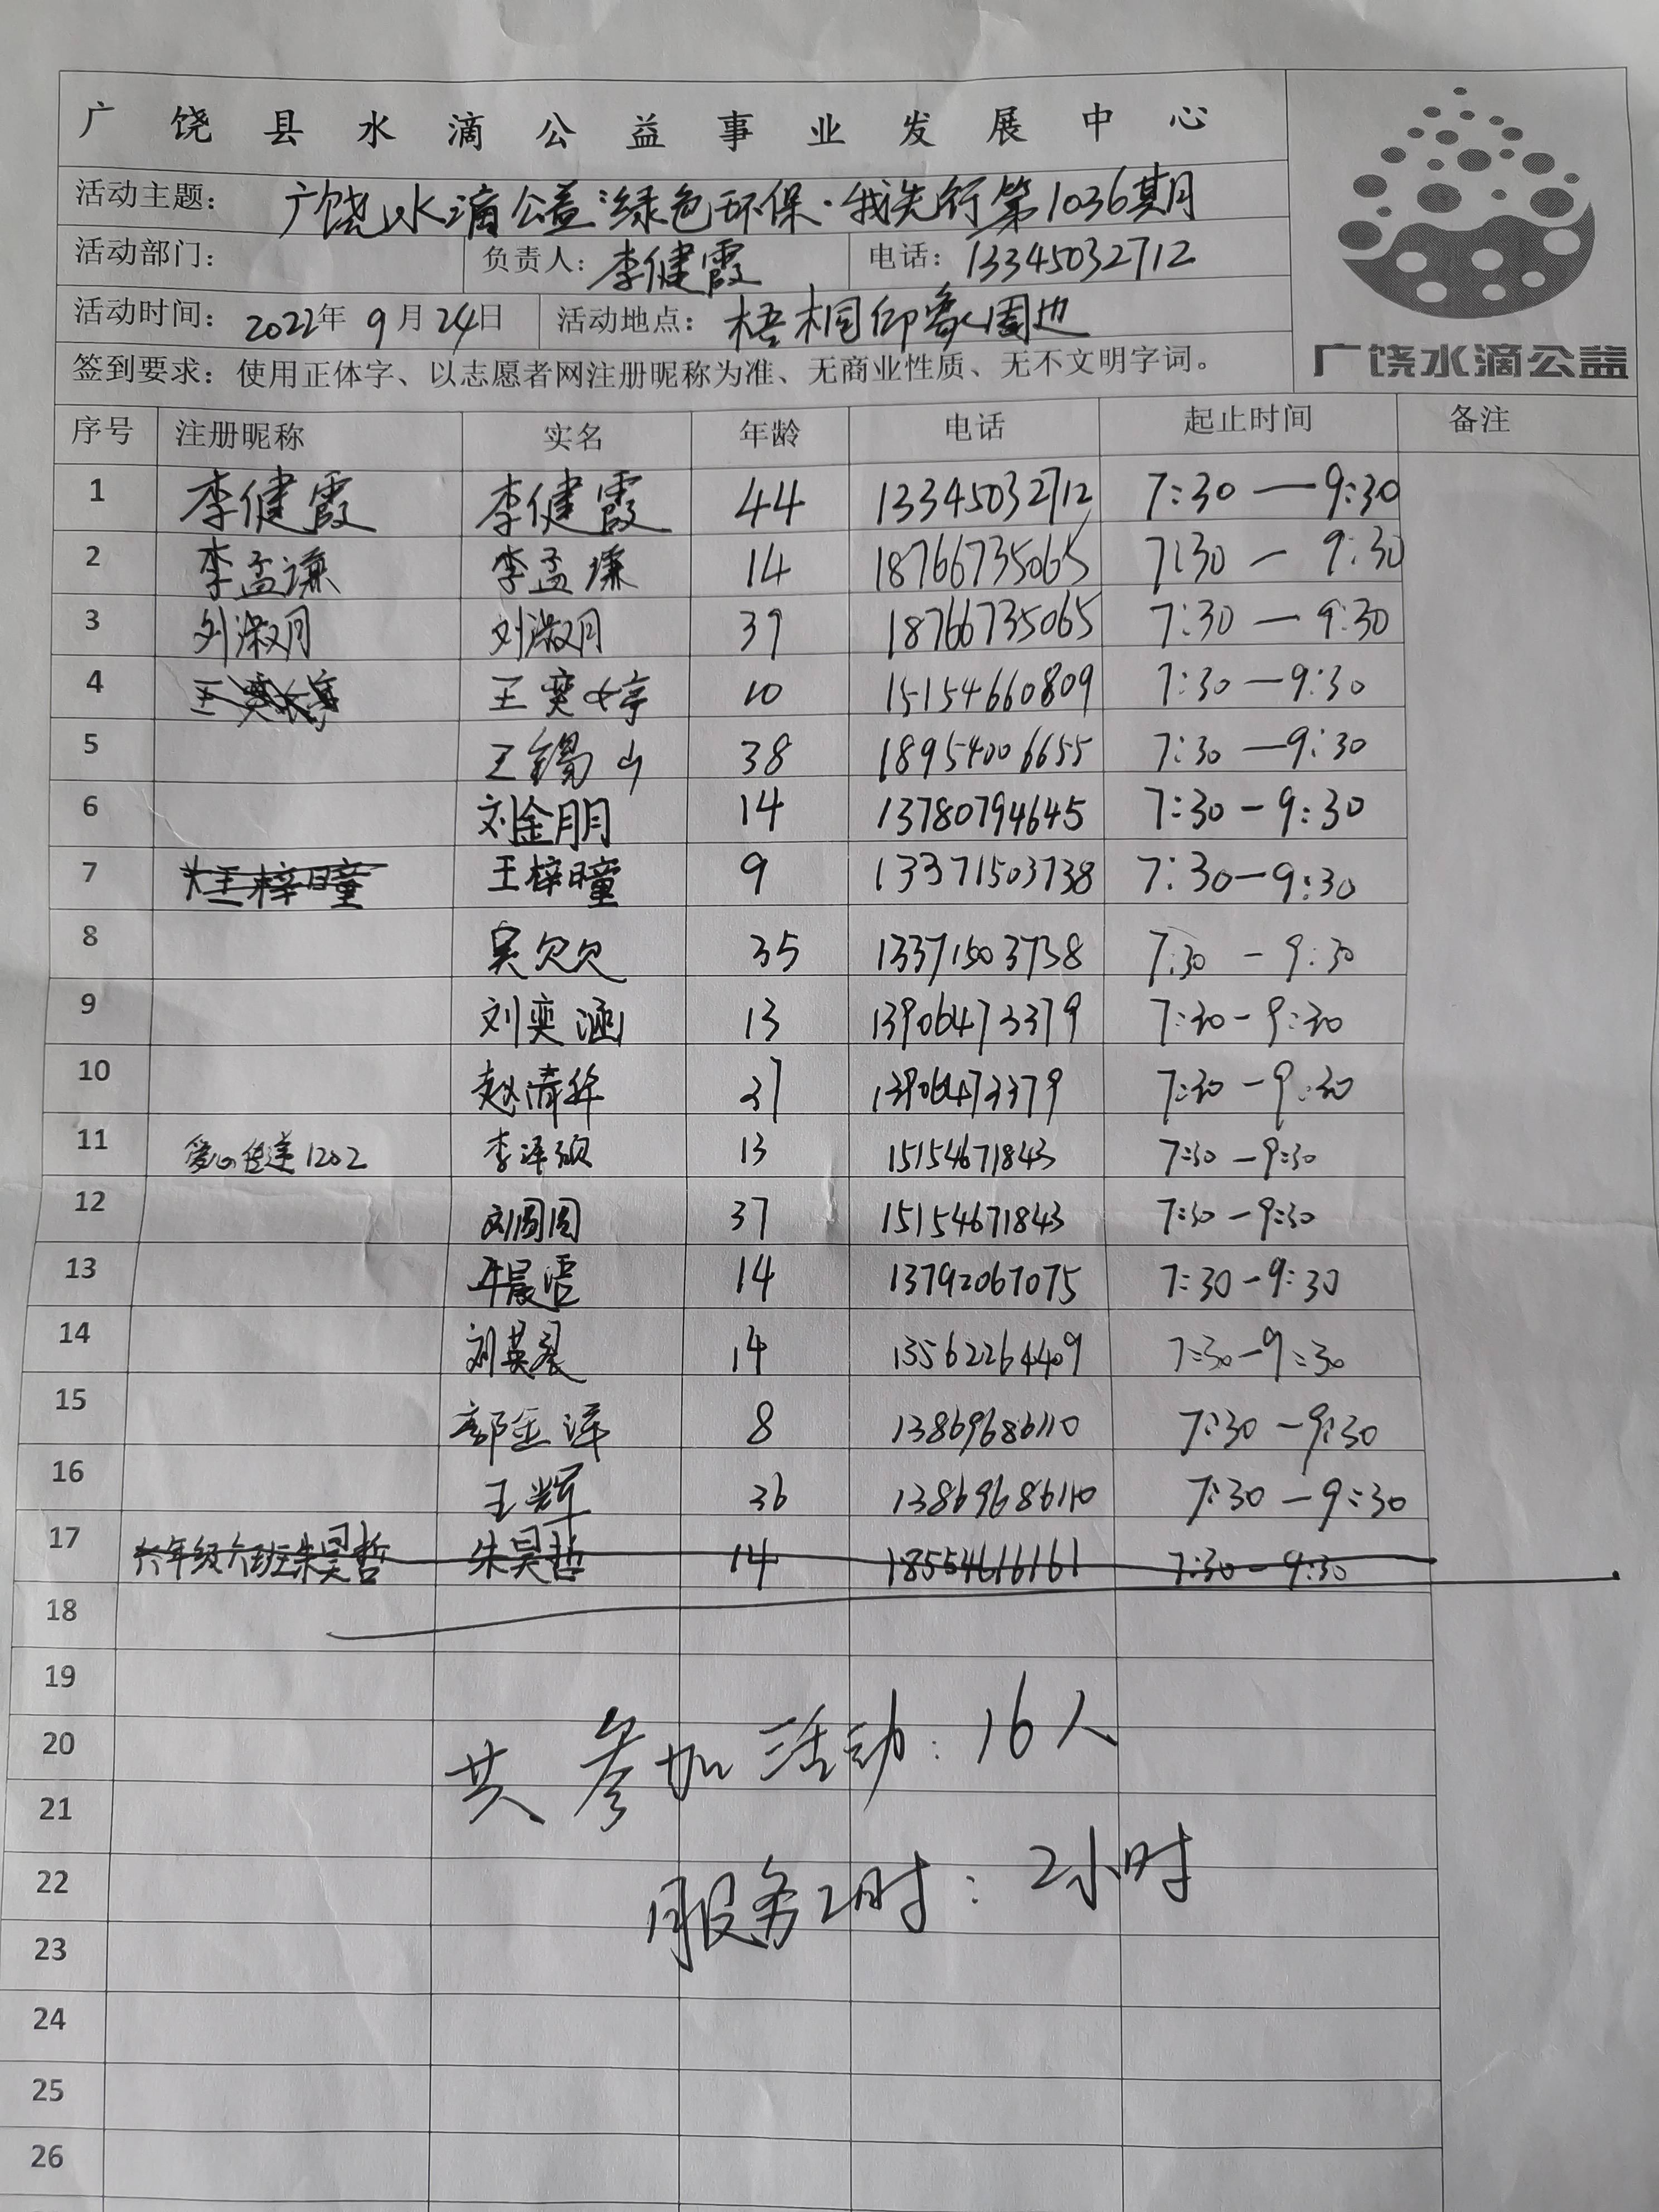 广饶县水滴公益事业发展中心
活动主题：广饶水滴公益"绿色环保·我先行第1036期
活动部门： 负责人：李健霞 电话：13345032712
活动时间：2022年9月24日 活动地点：梧桐印象周边
广饶水滴公益
签到要求：使用正体字、以志愿者网注册昵称为准、无商业性质、无不文明字词。
序号 注册昵称 实名 年龄 电话 起止时间 备注
1 李健霞 李健霞 44 13345032712 7:30—9:30
2 李孟谦 李孟谦 14 18766735065 7:30—9:30
3 刘淑月 刘淑月 39 18766735065 7:30—9:30
4 王奕婷 10 15154660809 7:30—9:30
5 王锡山 38 18954006655 7:30—9:30
6 刘金朋 14 13780794645 7:30-9:30
7 王梓曈 王梓曈 9 13371503738 7:30-9:30
8 吴欠欠 35 13371503738 7:30-9:30
9 刘奕涵 13 13906473379 7:30-9:30
10 赵清华 37 13906473379 7:30-9:30
11 爱心传递1202 李泽硕 13 15154671843 7:30-9:30
12 刘圆圆 37 15154671843 7:30-9:30
13 14 13792067075 7:30-9:30
14 刘英 14 13562264409 7:30-9:30
15 8 13869686110 7:30-9:30
16 王辉 36 13869686110 7:30-9:30
17 六年级六班朱昊哲 朱昊哲 14 18554616161 7:30-9:30
18
19
20 共参加活动：16人
21
22 服务时：2小时
23
24
25
26